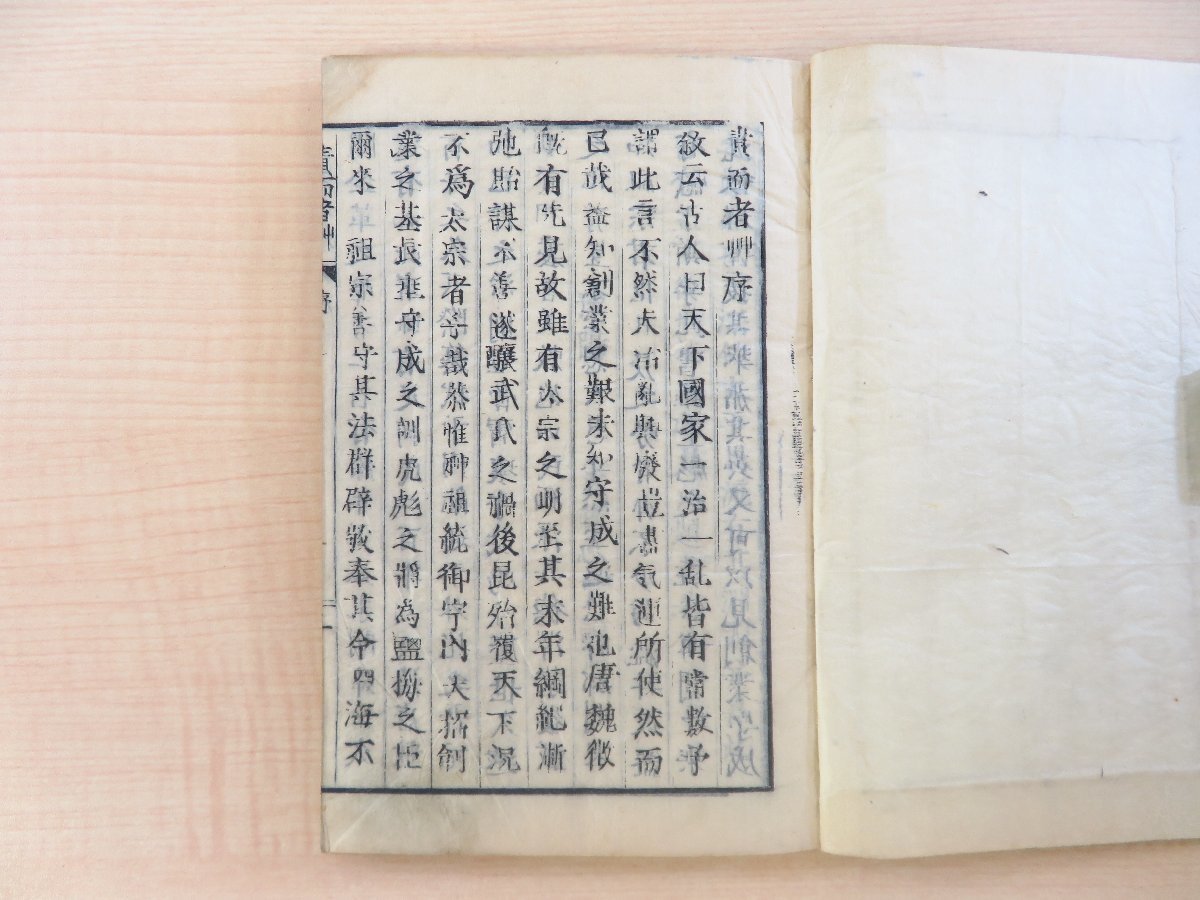 責而者艸序
敘云古人曰天下國家一治一乱皆有常數予
謂此言不然夫治亂與廢豈盡气運所使然而
已哉益知創業之艱未知守成之難也唐魏徵
既有先見故雖有太宗之明至其末年綱紀漸
弛貽謀不善遂釀武氏之禍後昆殆覆天下況
不爲太宗者乎哉恭惟神祖統御宇內大招創
業之基長埀守成之訓虎彪之將為鹽梅之臣
爾來祖宗善守其法群辟敬奉其令四海不
責而者艸 序 一